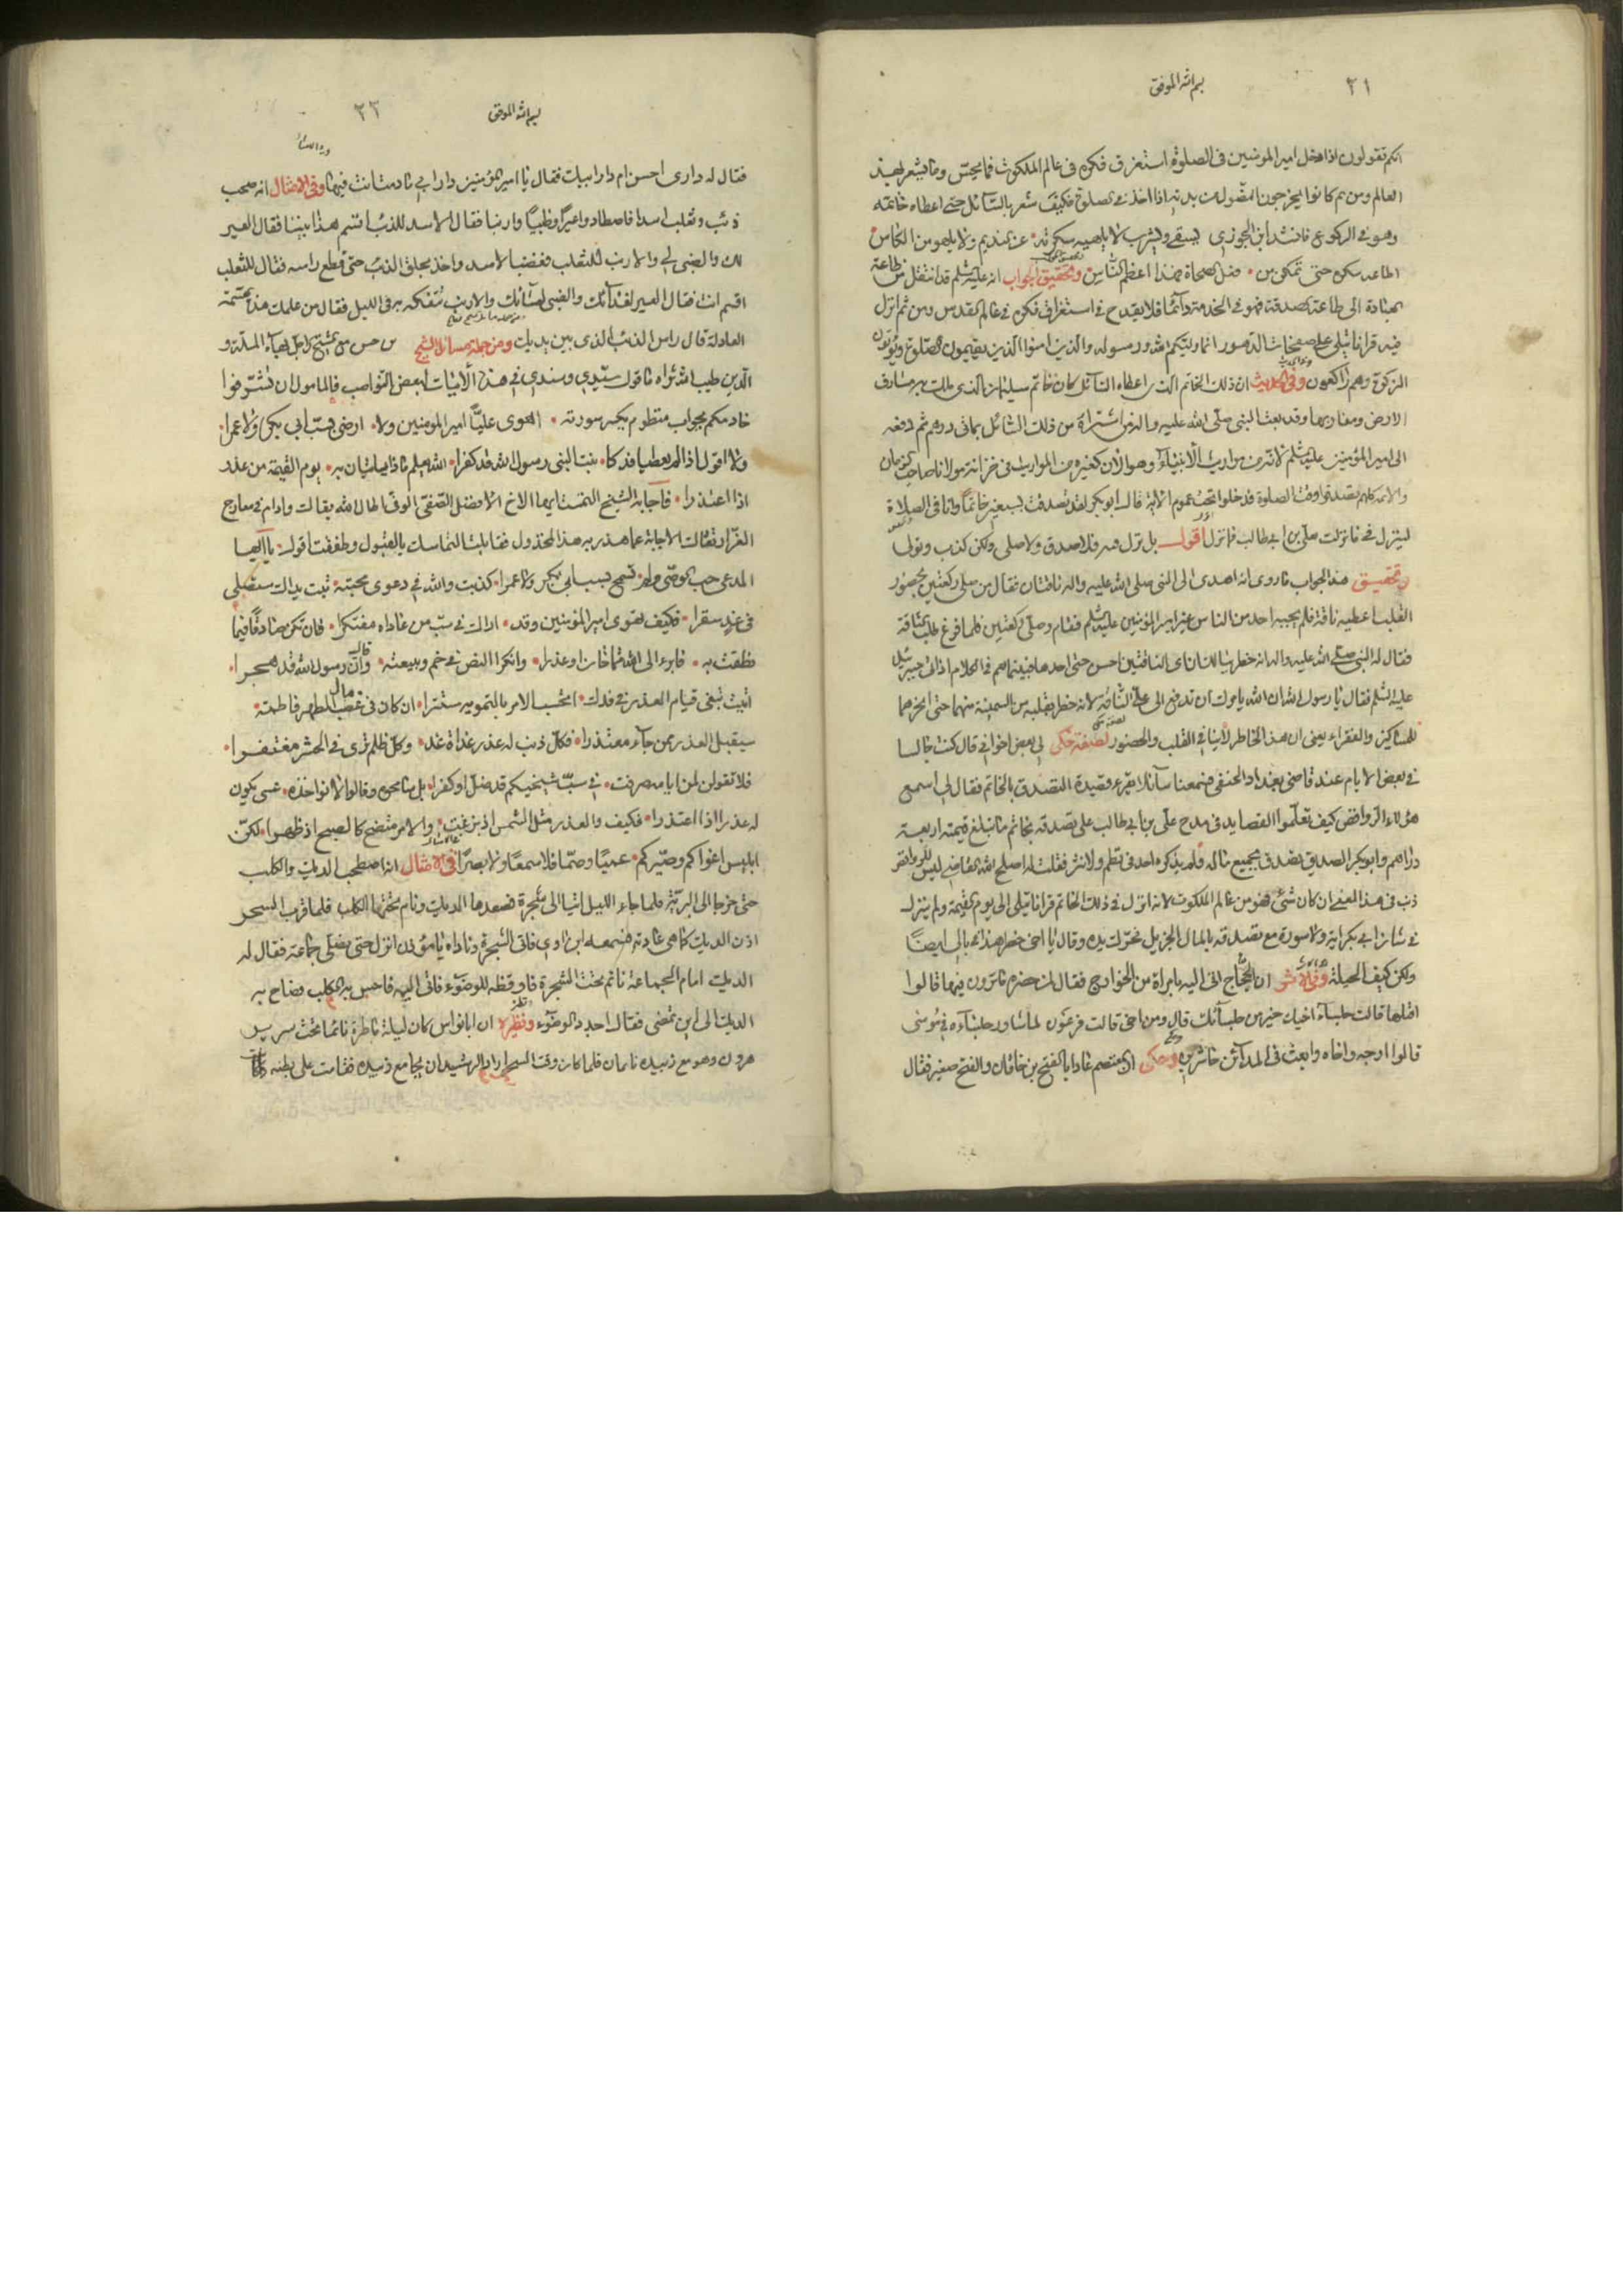 بسم الله الموفق
٢١
انكم تقولون اذا دخل امير المومنين في الصلوة استغرق فكره في عالم الملكوت فما يحس وما يشعر بهذا
العالم ومن ثم كانوا يخرجون النصول من بدنه اذا اخذ في الصلوة فكيف شعر بالسائل حتى اعطاه خاتمه
وهو في الركوع فانشد ابن الجوزي يسقي ويشرب لا تلهيه سكرته عن النديم ولا يلهو من الكاس
اطاعه سكره حتى تمكن من فعل الصحاة فهذا اعظم الناس وتحقيق الجواب انه عليه السلم قد انتقل من طاعة
الى طاعة الصدقة فهو في الخدمة دائما فلا يقدح في استغراق فكره في عالم القدس ومن ثم انزل
فيه قرانا يتلى على صفحات الدهور انما وليكم الله ورسوله والذين امنوا الذين يقيمون الصلوة ويؤتون
الزكوة وهم راكعون وفي الحديث ان ذلك الخاتم الذي اعطاه السائل كان خاتم سليمان الذي ملك به مشارق
الارض ومغاربها وقد بعث النبي صلى الله عليه واله من اشتراه من ذلك السائل بماني درهم ثم دفعه
الى امير المؤمنين عليه السلم لانه من مواريث الانبياء وهو الان كغيره من المواريث في خزانة مولانا صاحب الزمان
والائمة كلهم تصدقوا وقت الصلوة فدخلوا تحت عموم الاية قال ابو بكر لقد تصدقت بسبعين خاتما وانا في الصلاة
لينزل في ما نزلت في علي بن ابي طالب فما نزل اقول بل نزل فيه فلا صدق ولا صلى ولكن كذب وتولى
وتحقيق هذا الجواب ما روي انه اهدى الى النبي صلى الله عليه واله ناقتان فقال من صلى ركعتين بحضور
القلب اعطيه ناقة فلم يجيبه احد من الناس غير امير المؤمنين عليه السلم فقام وصلى ركعتين فلما فرغ طلب الناقة
فقال له النبي صلى الله عليه واله انه خطر ببالك ان اي الناقتين احسن حتى اخذها فبينما هم في الكلام اذ اتى جبرئيل
عليه السلم فقال يا رسول الله ان الله يامرك ان تدفع الى علي الناقة لانه خطر بقلبه من السمينة منهما حتى انحرهما
للمساكين والفقراء يعني ان هذا الخاطر لا ينافي القلب والحضور لطيفة حكى لي بعض اخواني قال كنت جالسا
في بعض الايام عند قاضي بغداد الحنفي فسمعنا سائلا يقرء قصيدة التصدق بالخاتم فقال لي اسمع
هؤلاء الروافض كيف تعلموا القصايد في مدح علي بن ابي طالب على تصدقه بخاتم ما تبلغ قيمته اربعة
دراهم وابو بكر الصديق تصدق بجميع ماله فلم يذكره احد في نظم ولا نثر فقلت له اصلح الله القاضي ليس للروافض
ذنب في هذا المعنى ان كان شئ فهو من عالم الملكوت لانه انزل في ذلك الخاتم قرانا يتلى الى يوم القيمة ولم ينزل
في شان ابي بكر اية ولا سورة مع تصدقه بالمال الجزيل فحرك يده وقال يا اخي خطر هذا ببالي ايضا
ولكن كيف الحيلة وفي الاثر ان الحجاج اتي اليه بامراة من الخوارج فقال لمن حضره ما ترون فيها قالوا
اقتلها قالت جلساء اخيك خير من جلسائك قال ومن اخي قالت فرعون لما شاور جلساءه في موسى
قالوا ارجه واخاه وابعث في المدائن حاشرين وحكى ان المعتصم عاد ابا الفتح بن خاقان والفتح صغير فقال
بسم الله الموفق
٢٢
فقال له داري احسن ام دار ابيك فقال يا امير المؤمنين دار ابي ما دمت انت فيها وفي الامثال انه صحب
ذئب وثعلب اسدا فاصطادوا عيرا وظبيا وارنبا فقال الاسد للذئب اقسم هذا بيننا فقال العير
لك والضبي لي والارنب للثعلب فغضب الاسد واخذ بحلق الذئب حتى قطع راسه فقال للثعلب
اقسم انت فقال العير لغدائك والضبي لعشائك والارنب تتفكه به في الليل فقال من علمك هذه القسمة
العادلة قال راس الذئب الذي بين يديك ومن جملة مسائل الشيخ
الدين طيب الله ثراه ما قول سيدي وسندي في هذه الابيات لبعض النواصب فالمامول ان تشرفوا
خادمكم بجواب منظوم يكسر سورته اهوى عليا امير المومنين ولا ارضى بسب ابي بكر ولا عمرا
ولا اقول اذا لم يعطيا فدكا بنت النبي رسول الله قد كفرا الله يعلم ماذا ياتيان به يوم القيمة من عذر
اذا اعتذرا فاجابه الشيخ التمست ايها الاخ الافضل الصفي الوفي اطال الله بقاك وادام في معارج
العز ارتقاك الاجابة عما هذر به هذا المخذول فقابلت التماسك بالقبول وطفقت اقول يا ايها
المدعي حب الوصي ولم تسمح بسب ابي بكر ولا عمرا كذبت والله في دعوى محبته تبت يداك ستصلى
في غد سقرا فكيف تهوى امير المؤمنين وقد اراك في سب من عاداه مفتكرا فان تكن صادقا فيما
نطقت به فابرء الى الله ممن خان او غدرا وانكر النص في خم وبيعته وقال ان رسول الله قد هجرا
اتيت تبغي قيام العذر في فدك اتحسب الامر بالتمويه مستترا ان كان في غصب مال الطهر فاطمة
سيقبل العذر ممن جاء معتذرا فكل ذنب له عذر غداة غد وكل ظلم ترى في الحشر مغتفرا
فلا تقولن لمن ايامه صرفت في سب شيخيكم قد ضل او كفرا بل سامحوه وقولوا لا نؤاخذه عسى يكون
له عذرا اذا اعتذرا فكيف والعذر مثل الشمس اذ بزغت والامر متضح كالصبح اذ ظهرا لكن
ابليس اغواكم وصيركم عميا وصما فلا سمعا ولا بصرا في الامثال انه اصطحب الديك والكلب
حتى خرجا الى البرية فلما جاء الليل اتيا الى شجرة فصعدها الديك ونام تحتها الكلب فلما قرب السحر
اذن الديك كما هي عادته فسمعه ابن اوى فاتى الشجرة وناداه يا مؤذن انزل حتى نصلي جماعة فقال له
الديك امام الجماعة نائم تحت الشجرة فاوقظه للوضوء فاتى اليه فاحس به الكلب فصاح به
الديك الى اين تمضي فقال اجدد الوضوء ونظيره ان ابا نواس كان ليلة ناطرة نائما تحت سرير
هرون وهو مع زبيدة نائمان فلما كان وقت السحر اراد الرشيد ان يجامع زبيدة فقامت على بطنه